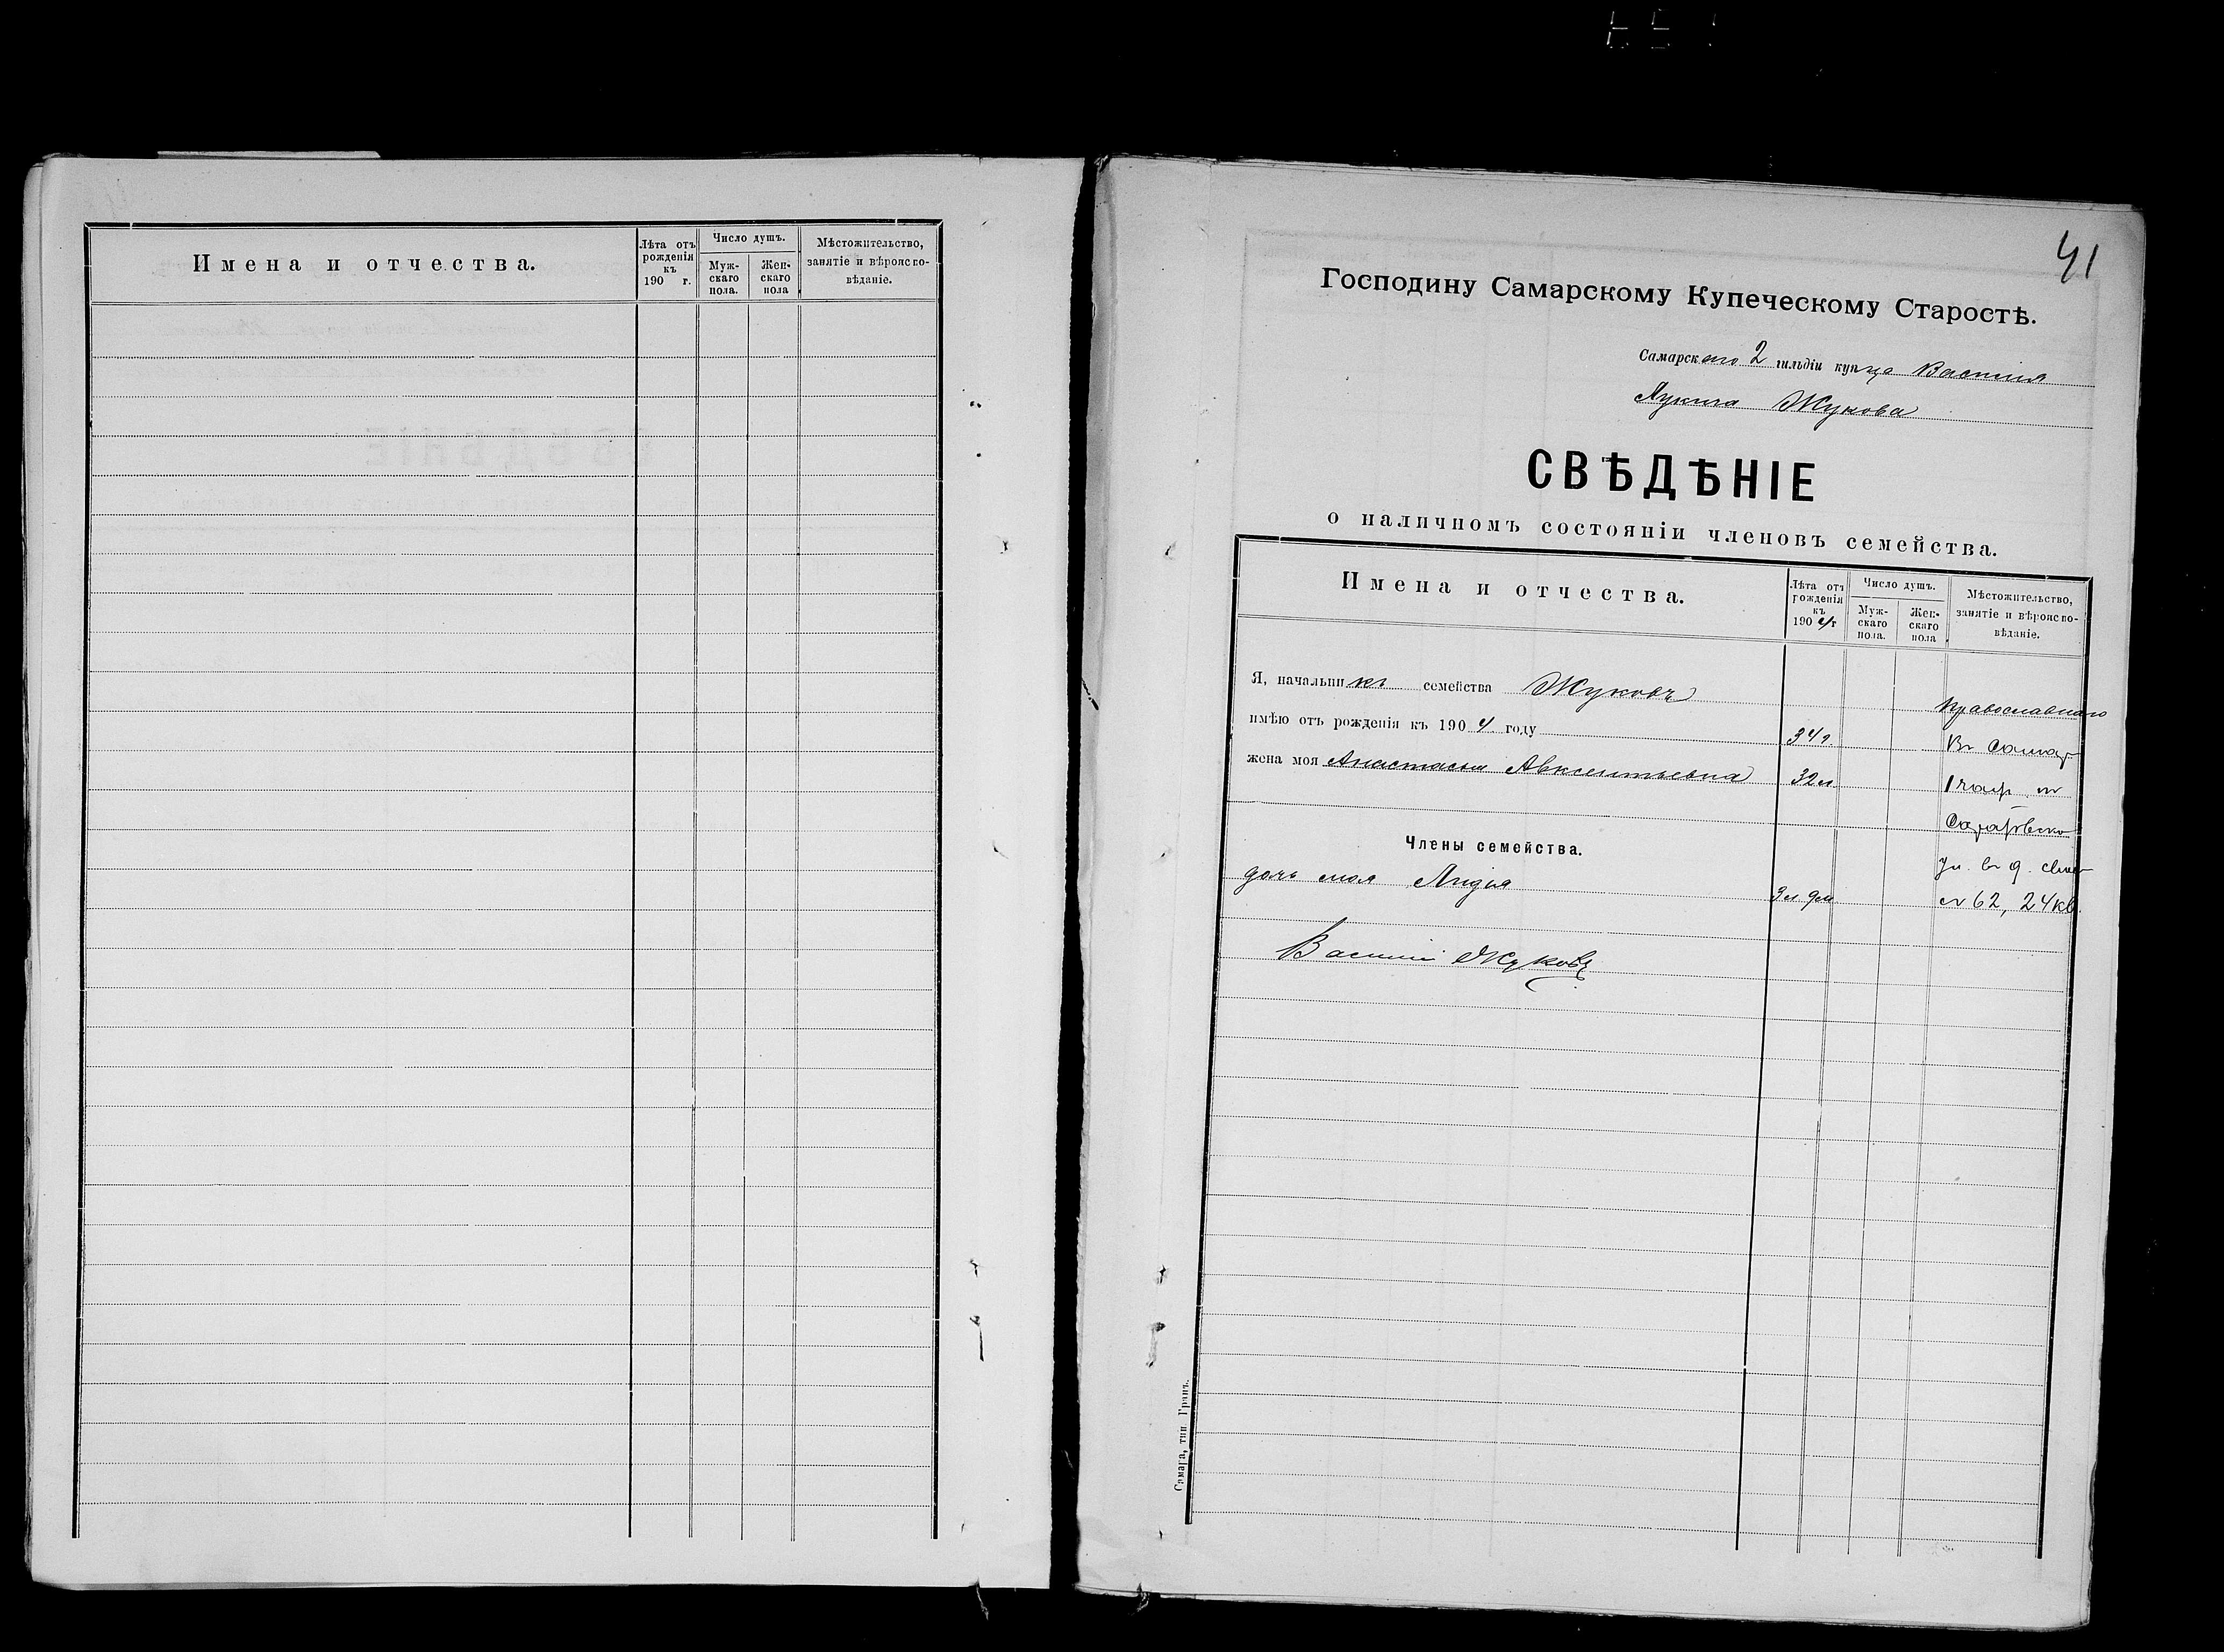 Имена и отчества.
Лѣта отъ рожденія къ 190 г.
Число душъ.
Мужскаго пола.
Женскаго пола
Мѣстожительство, занятіе и вѣроисповѣданіе.
41
Господину Самарскому Купеческому Старостѣ.
Самарскаго 2 гильдіи купца Василія
Лукича Жукова
СВѢДѢНІЕ
о наличномъ состояніи членовъ семейства.
Имена и отчества.
Лѣта отъ рожденія къ 1904 г
Число душъ.
Мужскаго пола.
Женскаго пола
Мѣстожительство, занятіе и вѣроисповѣданіе.
Я, начальникъ семейства Жуковъ
Православнаго
имѣю отъ рожденія къ 1904 году 34 г.
Въ Самар
жена моя Анастасья Авксентьевна 32 л.
1 части
Члены семейства.
ул. въ д.
дочь моя Лидія 3 л 9 м
№ 62, 24 кв.
Василій Жуковъ
Самара, тип. Гранъ.